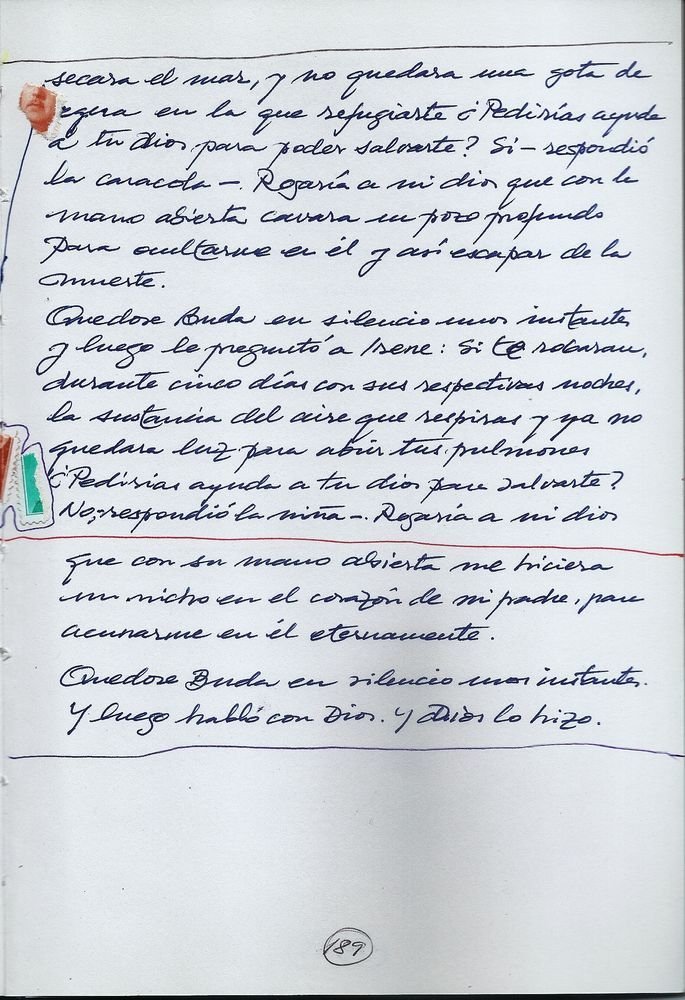 secara el mar, y no quedara una gota de
agua en la que refugiarte ¿Pedirías ayuda
a tu dios, para poder salvarte? Sí – respondió
la caracola –. Rogaría a mi dios que con la
mano abierta cavara un pozo profundo
para ocultarme en él y así escapar de la
muerte.
Quedose Buda en silencio unos instantes
y luego le preguntó a Irene: Si te robaran,
durante cinco días con sus respectivas noches,
la sustancia del aire que respiras y ya no
quedara luz para abrir tus pulmones
¿Pedirías ayuda a tu dios para salvarte?
No,–respondió la niña –. Rogaría a mi dios
que con su mano abierta me hiciera
un nicho en el corazón de mi padre, para
acunarme en él eternamente.
Quedose Buda en silencio unos instantes.
Y luego habló con Dios. Y Dios lo hizo.
189